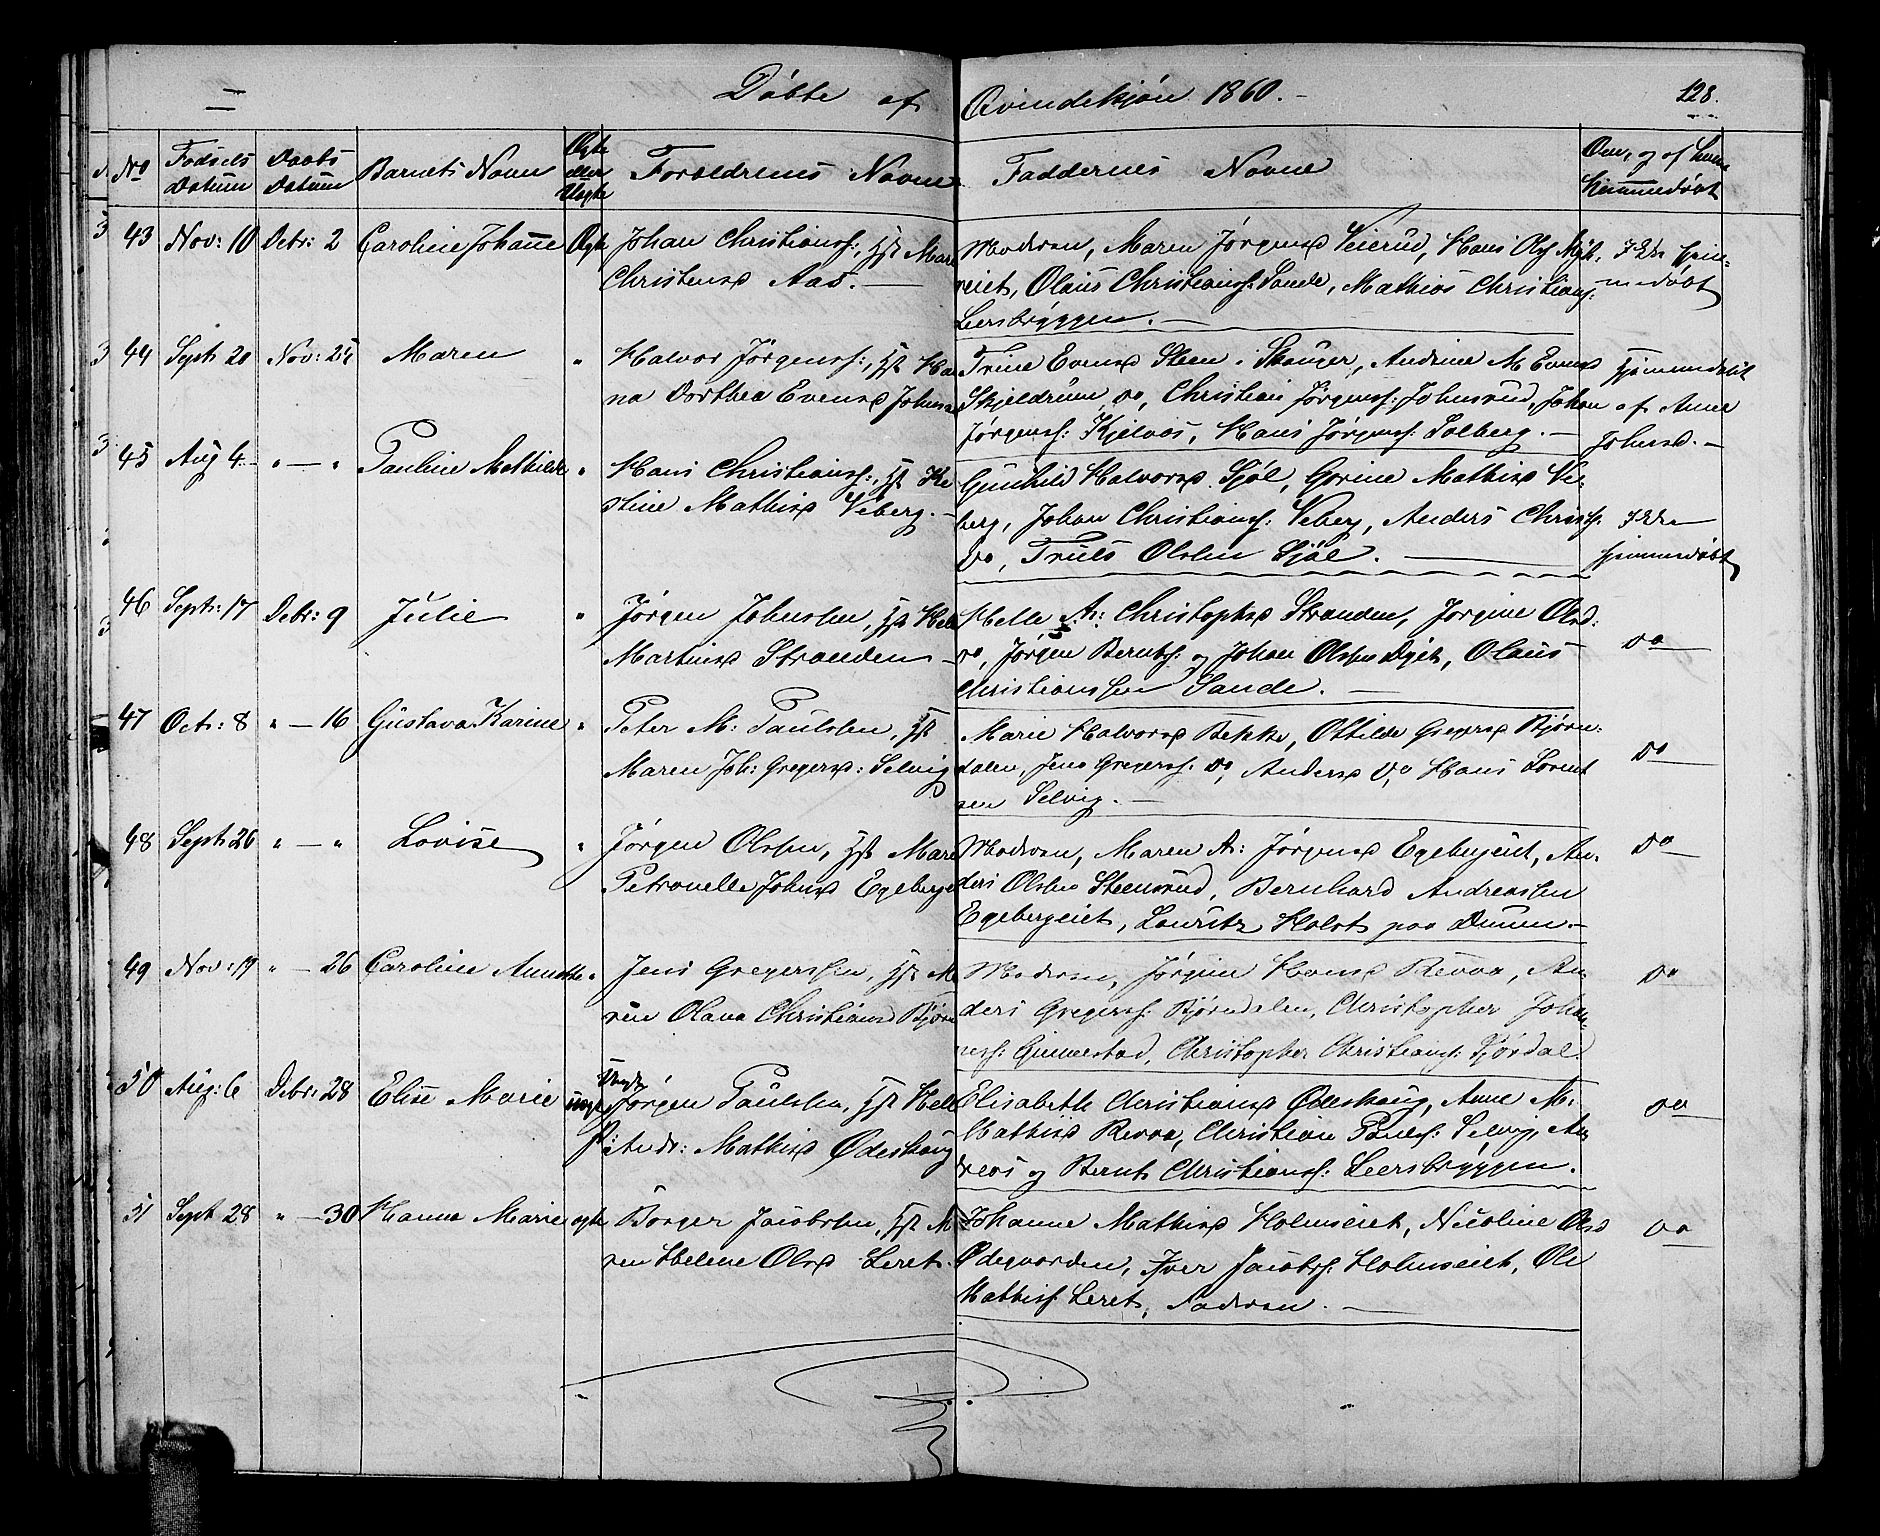 Döbte af Qvindekjön 1860.-
128.
No
Födsels Datum
Daabs Datum
Barnets Navn
Ægte eller Uægte
Foraeldrenes Navne
Faddernes Navne
Om, og af hvem hjemmedöbt
43 Nov: 10 Debr: 2 Caroline Johanne Ægte
Johan Christianss:, hst Mare
Christensd Aas. —
Moderen, Maren Jørgensd Veierud, Hans Ols
reiet, Olaus Christianss: Sande, Mathias Christians:
Leersbryggen. —
Ikke hjem-
medöbt
44 Sept 20 Nov: 25 Maren "
Halvor Jørgenss:, hst Han
na Dorthea Evensd Johnsr
Trine Evensd Steen i Skouger, Andrine M Evensd
Skjeldrum, do, Christian Jørgenss: Johnsrud, Johan
Jørgenss: Kjelaas, Hans Jørgenss: Solberg. —
hjemmedöbt
af Anne
Johnsd. —
45 Aug 4 " — " Pauline Mathilde "
Hans Christianss:, hst Ke
stine Mathisd Veberg. —
Gunhild Halvorsd Sjöl, Gorine Mathisd Ve-
berg, Johan Christianss: Veberg, Anders Christs:
do, Truls Olssen Sjöl. —
Ikke
hjemmedöbt
46 Septr: 17 Debr: 9 Julie "
Jørgen Johnssen, hst Hell
Martinsd Stranden —
Helle A: Christophsd Stranden, Jorgine Olsd:
do, Jørgen Berntss: og Johan Olssen Dyet, Olaus
Christianssen Sande. —
do
47 Octr: 8 " — 16 Gustava Karine "
Peter M: Paulssen, hst
Maren Joh: Gregersd: Selvig
Marie Halvorsd Bekke, Ottilde Gregersd Bjørn-
dalen, Jens Gregerss: do, Andersd do, Hans Lorent
sen Selvig. —
do
48 Sept 26 " — " Lovise "
Jørgen Olssen, hst Mare
Petronelle Johnsd Egeberge
Moderen, Maren A: Jørgensd Egebergeiet, An-
ders Olssen Steensrud, Bernhard Andreassen
Egebergeiet, Lauritz Holst paa Duuen. —
do
49 Nov: 19 " — 26 Caroline Annette "
Jens Gregerssen, hst M
ren Olava Christiansd Bjørn
Moderen, Jørgine Hansd Revaa, An-
ders Gregerss: Bjørndalen, Christopher Johan-
ness: Gunnestad, Christopher Christianss: Fjördal
do
50 Aug: 6 Debr: 28 Elise Marie uægte
Ungk
Jørgen Paulssen, hst Hell
Pi Andr: Mathisd Ødeskoug
Elisabeth Christiansd Ødeskoug, Anne M:
Mathisd Revaa, Christian Paulss: Selvig, An
dreas og Bernt Christianss: Leersbryggen.
do
51 Sept 28 " — 30 Hanna Marie ægte
Borger Jacobssen, hst M
ren Helene Olsd Leret.
Johanne Mathisd Holmseiet, Nicoline Olsd
Ødegaarden, Iver Jacobss: Holmseiet, Ole
Mathiss Leret, Faderen. —
do